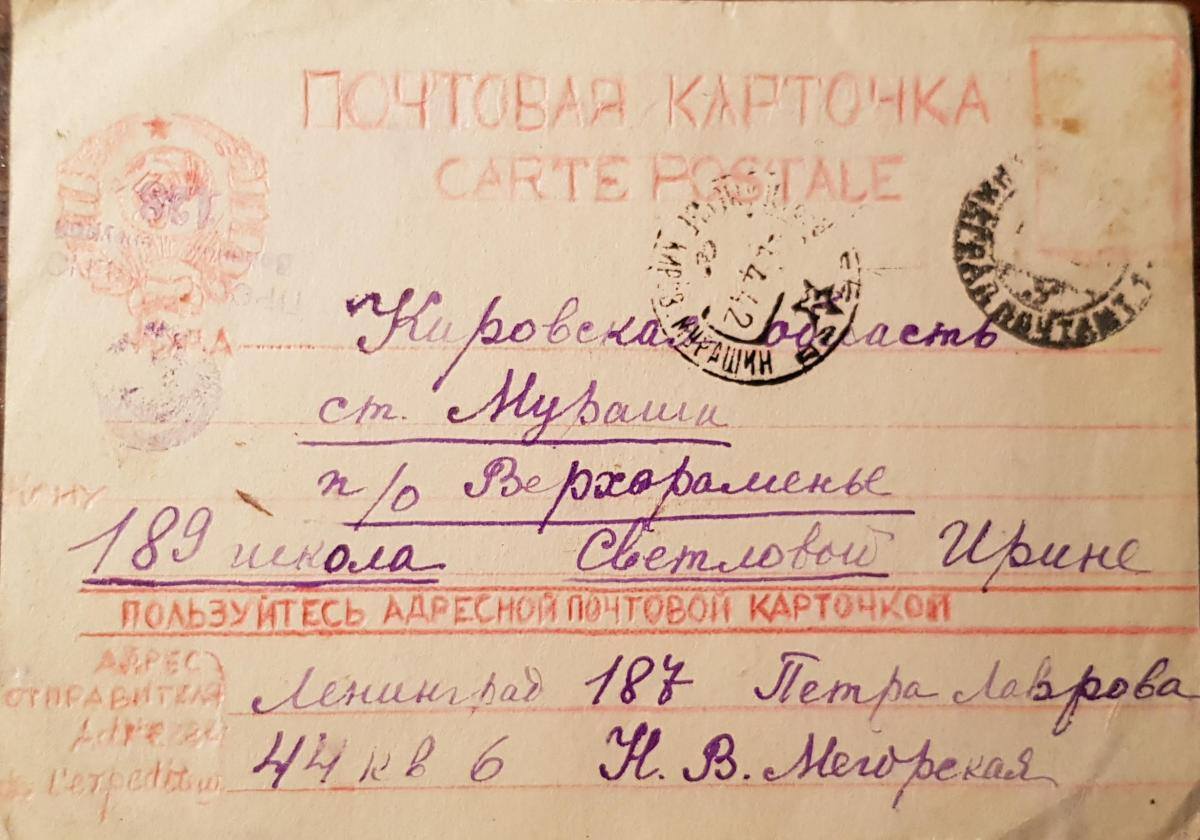 ПОЧТОВАЯ КАРТОЧКА
CARTE POSTALE
КУДА
Кировская область
ст. Мураши
п/о Верхораменье
КОМУ
189 школа Светловой Ирине
ПОЛЬЗУЙТЕСЬ АДРЕСНОЙ ПОЧТОВОЙ КАРТОЧКОЙ
АДРЕС
ОТПРАВИТЕЛЯ
Ленинград 187 Петра Лаврова
44 кв 6 Н. В. Мегорская
4.42
МУРАШИ
ПОЧТАМТ